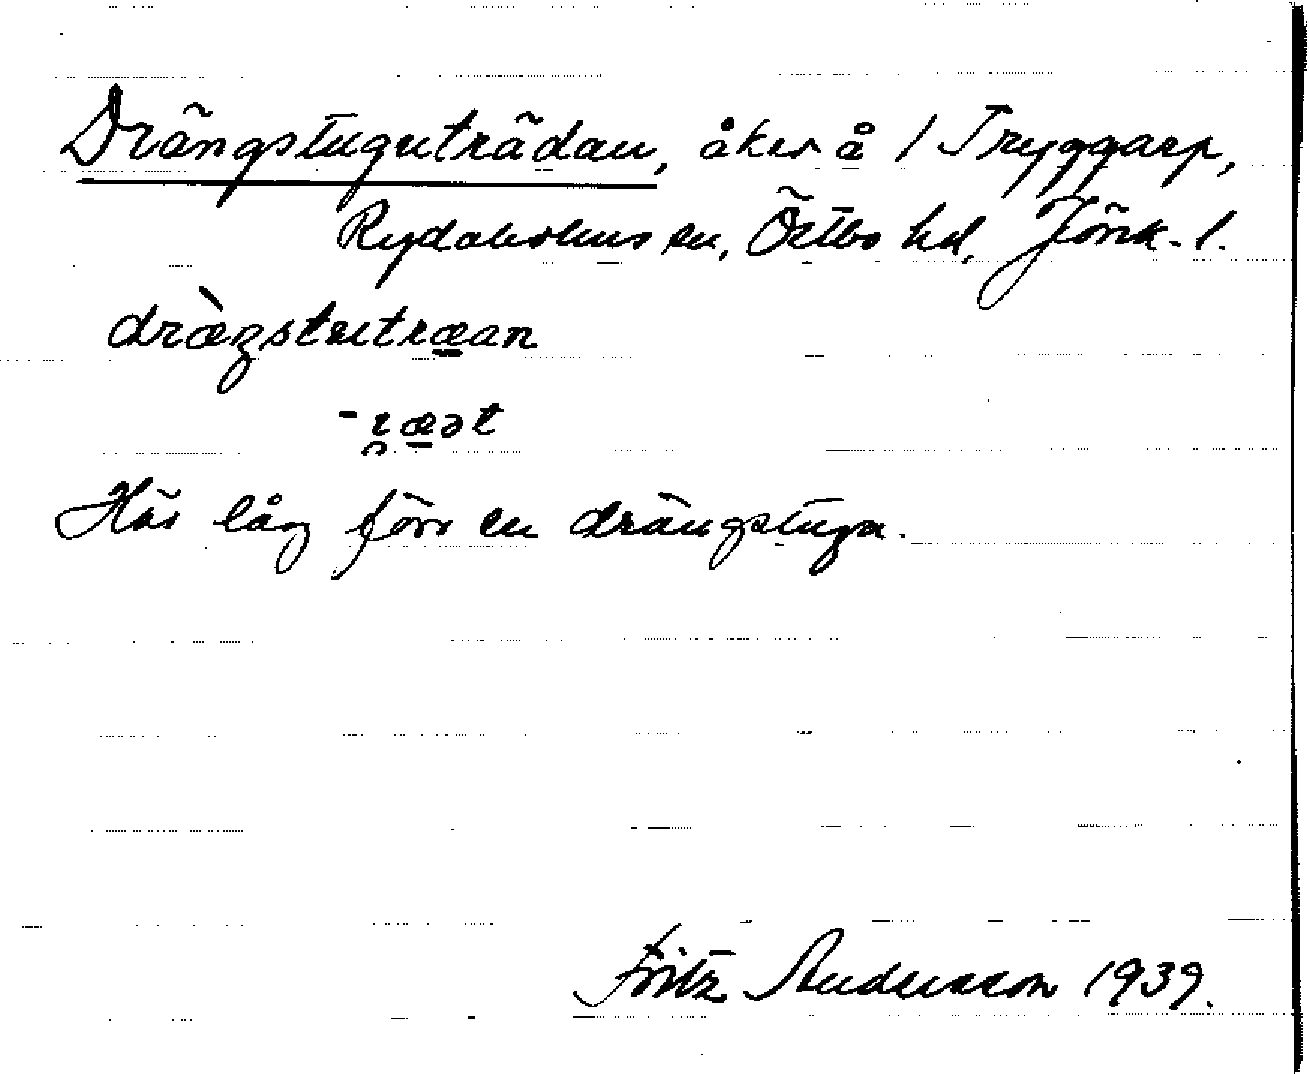 Drängstuguträdan, åker å 1 Tryggarp,
Rydaholms sn, Östbo hd, Jönk. l.
Här låg förr en drängstuga.
Fritz Andersson 1939.